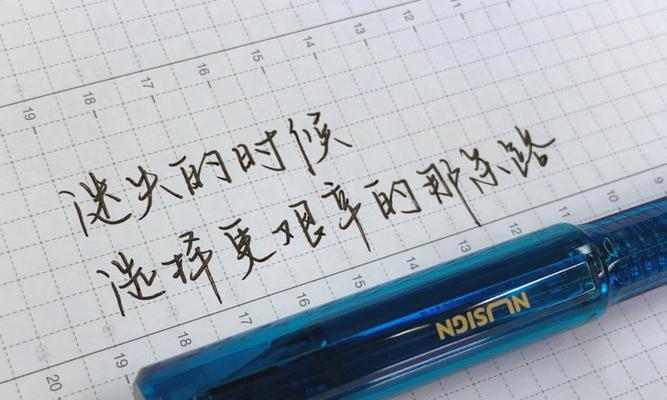 11
12
13
14
15
16
17
18
19
迷失的时候
选择更艰辛的那条路
10
11
12
13
14
15
16
17
18
19
20
NUSIGN